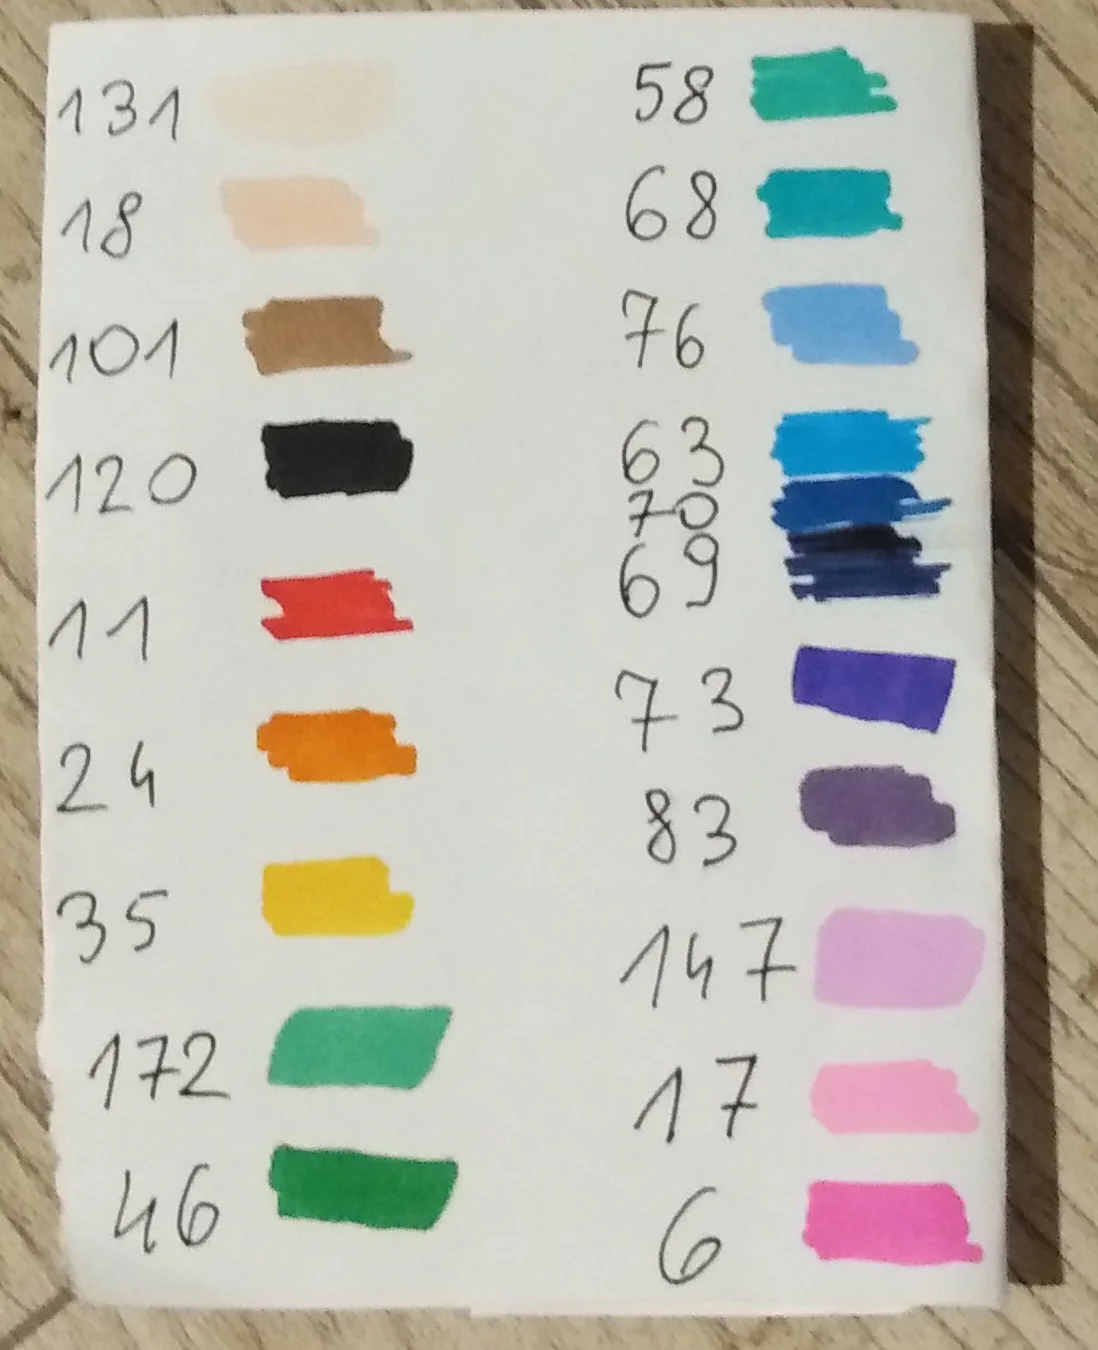 131
18
101
120
11
24
35
172
46
58
68
76
63
70
69
73
83
147
17
6